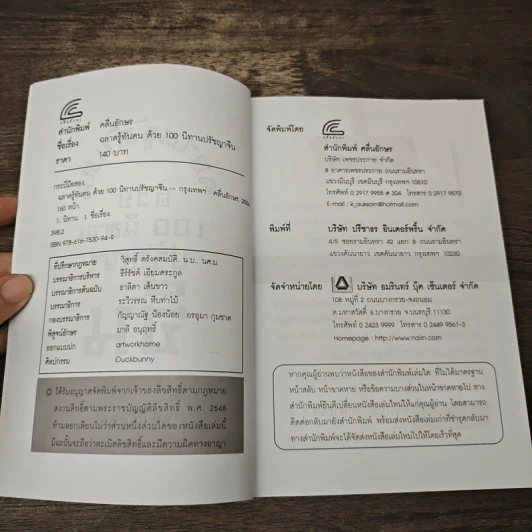 สำนักพิมพ์ คลื่นอักษร
ชื่อเรื่อง ฉลาดรู้ทันคน ด้วย 100 นิทานปรัชญาจีน
ราคา 140 บาท
กระบี่มือสอง.
ฉลาดรู้ทันคน ด้วย 100 นิทานปรัชญาจีน -- กรุงเทพฯ : คลื่นอักษร,
160 หน้า.
1. นิทาน. I. ชื่อเรื่อง.
398.2
ISBN 978-616-7530-94-9
ที่ปรึกษากฎหมาย วิสุทธิ์ ตรังคสมบัติ, น.บ., นศ.ม.
บรรณาธิการบริหาร ธีร์รัชต์ เอี่ยมตระกูล
บรรณาธิการต้นฉบับ อาลิตา เส้นขาว
บรรณาธิการ ระวิวรรณ หีบท่าไม้
กองบรรณาธิการ กัญญาณัฐ น้องน้อย อรอุมา กุมขาด
พิสูจน์อักษร มาลี อนุฤทธิ์
ออกแบบปก artworkhome
ศิลปกรรม iDuckbunny
© ได้รับอนุญาตจัดพิมพ์จากเจ้าของลิขสิทธิ์ตามกฎหมาย
สงวนสิทธิ์ตามพระราชบัญญัติลิขสิทธิ์ พ.ศ. 2548
ห้ามลอกเลียนไม่ว่าส่วนหนึ่งส่วนใดของหนังสือเล่มนี้
มิฉะนั้นจะถือว่าละเมิดลิขสิทธิ์และมีความผิดทางอาญา
จัดพิมพ์โดย
สำนักพิมพ์ คลื่นอักษร
บริษัท เพชรประกาย จำกัด
ตึกอาคารเพชรประกาย ถนนรามอินทรา
แขวงมีนบุรี เขตมีนบุรี กรุงเทพฯ 10510
โทรศัพท์ 0 2917 9585 # 304 โทรสาร 0 2917 9570
E-mail : k_auksorn@hotmail.com
พิมพ์ที่ บริษัท ปรีชาธร อินเตอร์พริ้น จำกัด
4/5 ซอยรามอินทรา 42 แยก 8 ถนนรามอินทรา
แขวงคันนายาว เขตคันนายาว กรุงเทพฯ 10230
จัดจำหน่ายโดย บริษัท อมรินทร์ บุ๊ค เซ็นเตอร์ จำกัด
108 หมู่ที่ 2 ถนนบางกรวย-จงถนอม
ต.มหาสวัสดิ์ อ.บางกรวย จ.นนทบุรี 11130
โทรศัพท์ 0 2423 9999 โทรสาร 0 2449 9561-3
Homepage : http://www.naiin.com
หากคุณผู้อ่านพบว่าหนังสือของสำนักพิมพ์เล่มใด ที่ไม่ได้มาตรฐาน
หน้าสลับ หน้าขาดหาย หรือข้อความบางส่วนในหน้าขาดหายไป ทาง
สำนักพิมพ์ยินดีเปลี่ยนหนังสือเล่มใหม่ให้แก่คุณผู้อ่าน โดยสามารถ
ติดต่อกลับมายังสำนักพิมพ์ พร้อมส่งหนังสือเล่มเก่าที่ชำรุดกลับมา
ทางสำนักพิมพ์จะได้จัดส่งหนังสือเล่มใหม่ไปให้โดยเร็วที่สุด